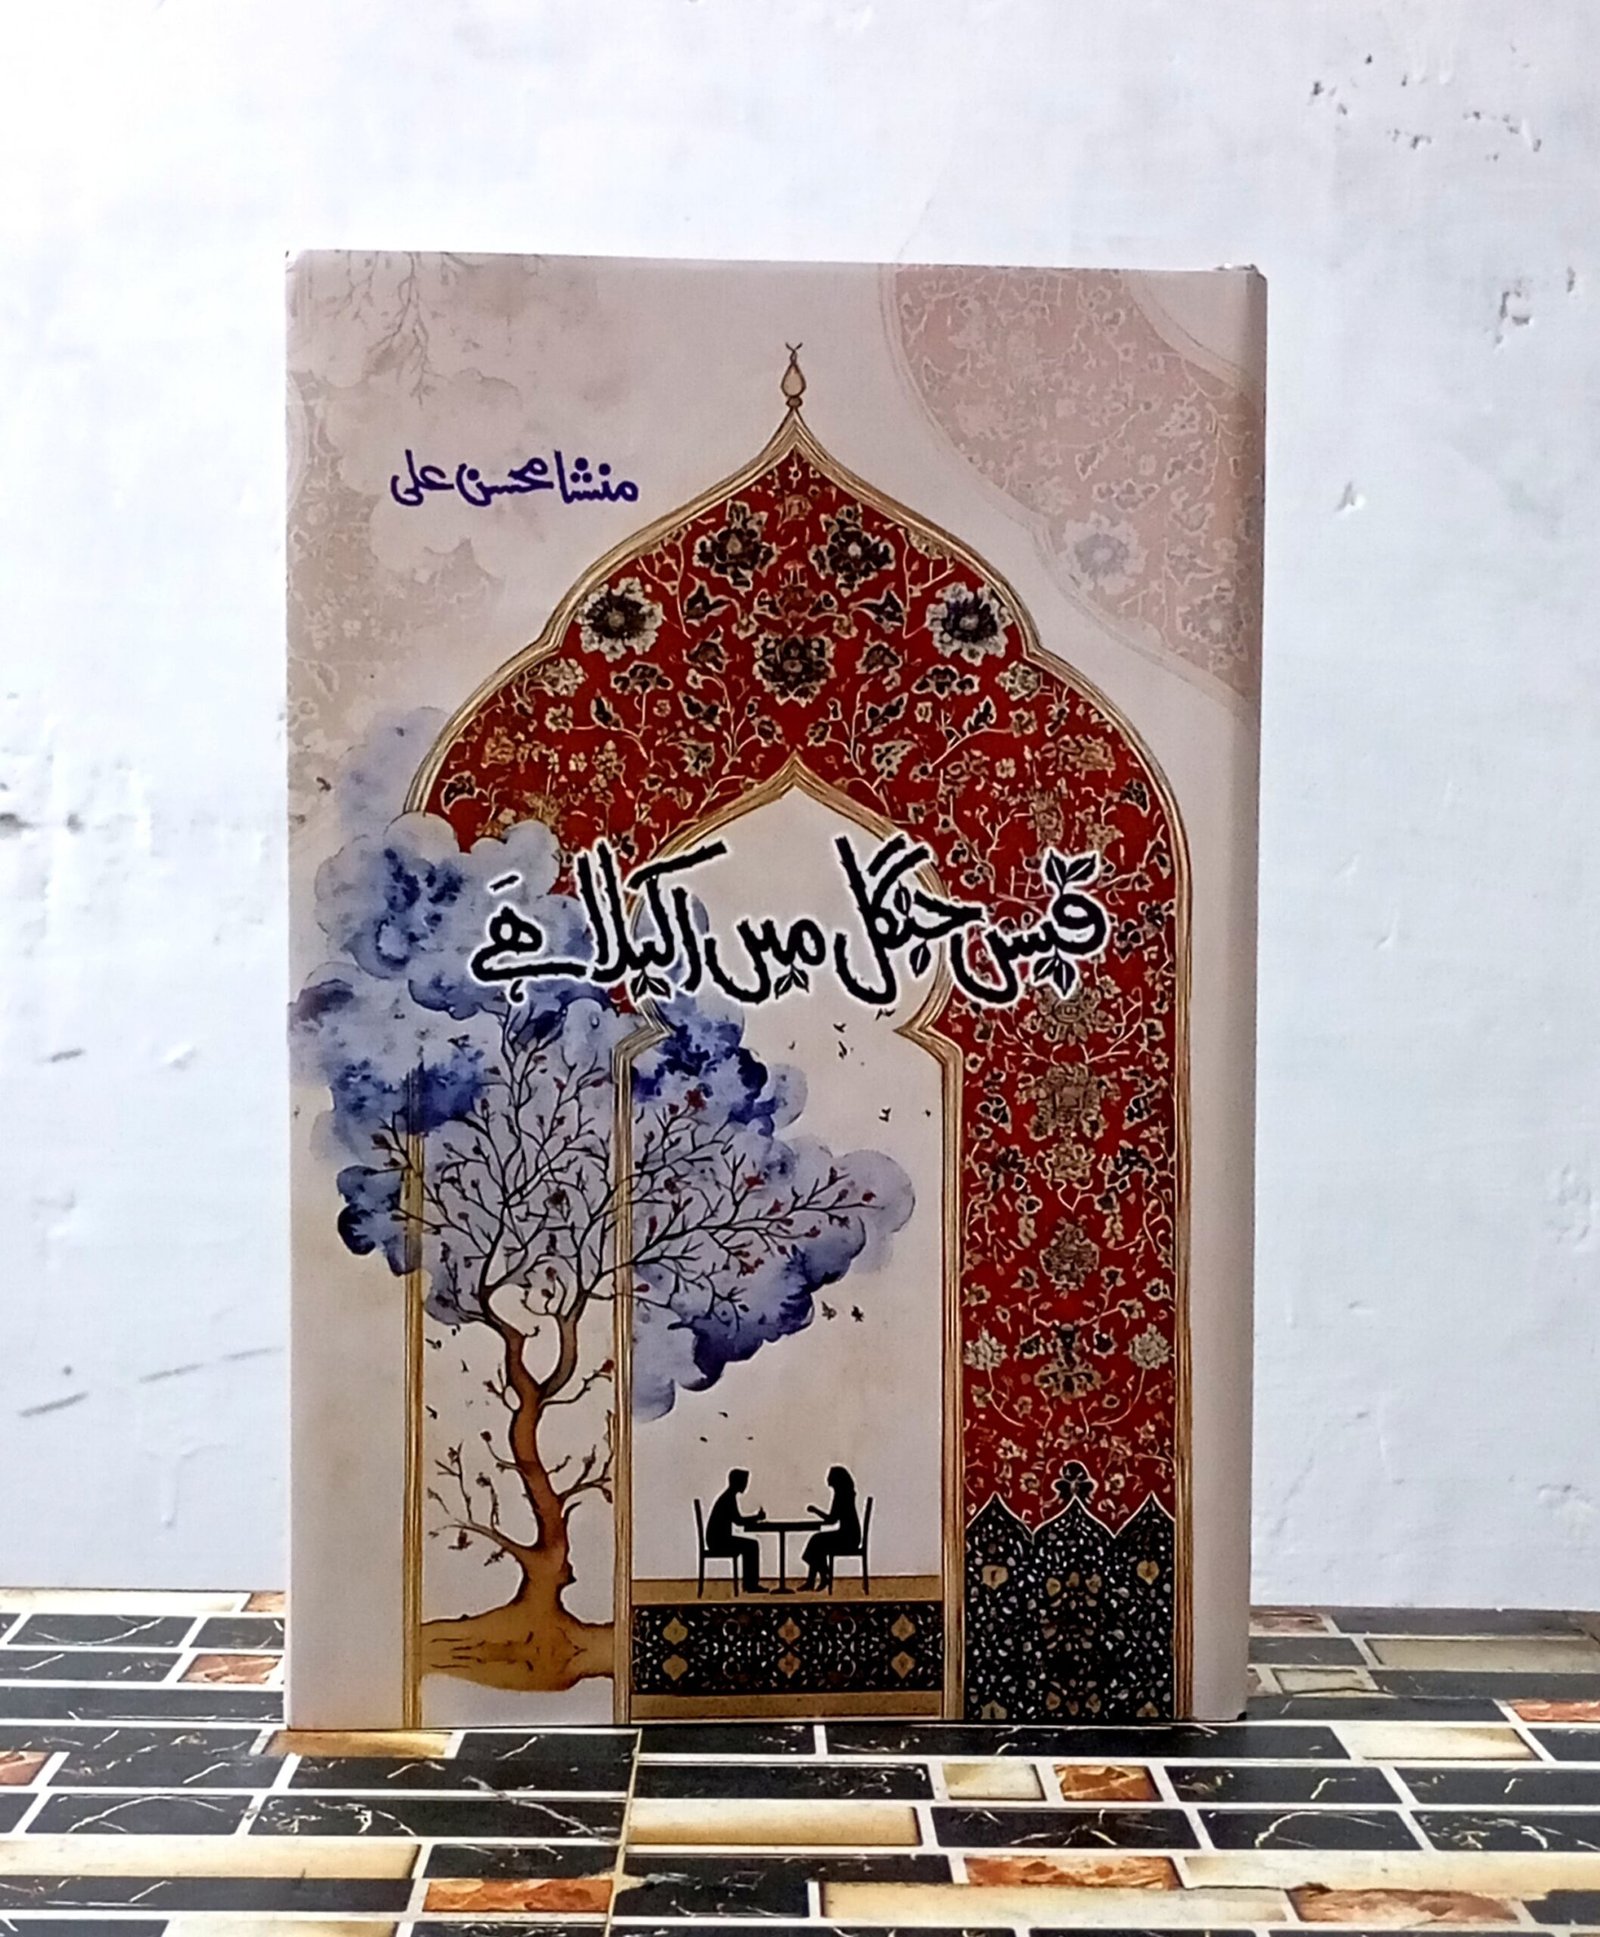 منشا محسن علی
قیس جنگل میں اکیلا ہے